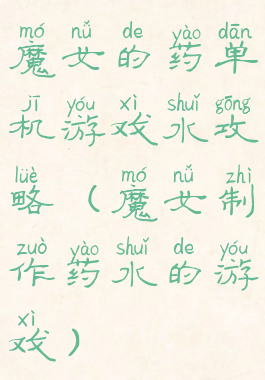 mó nǚ de yào dān
魔女的药单
jī yóu xì shuǐ gōng
机游戏水攻
lüè mó nǚ zhì
略（魔女制
zuò yào shuǐ de yóu
作药水的游
xì
戏）